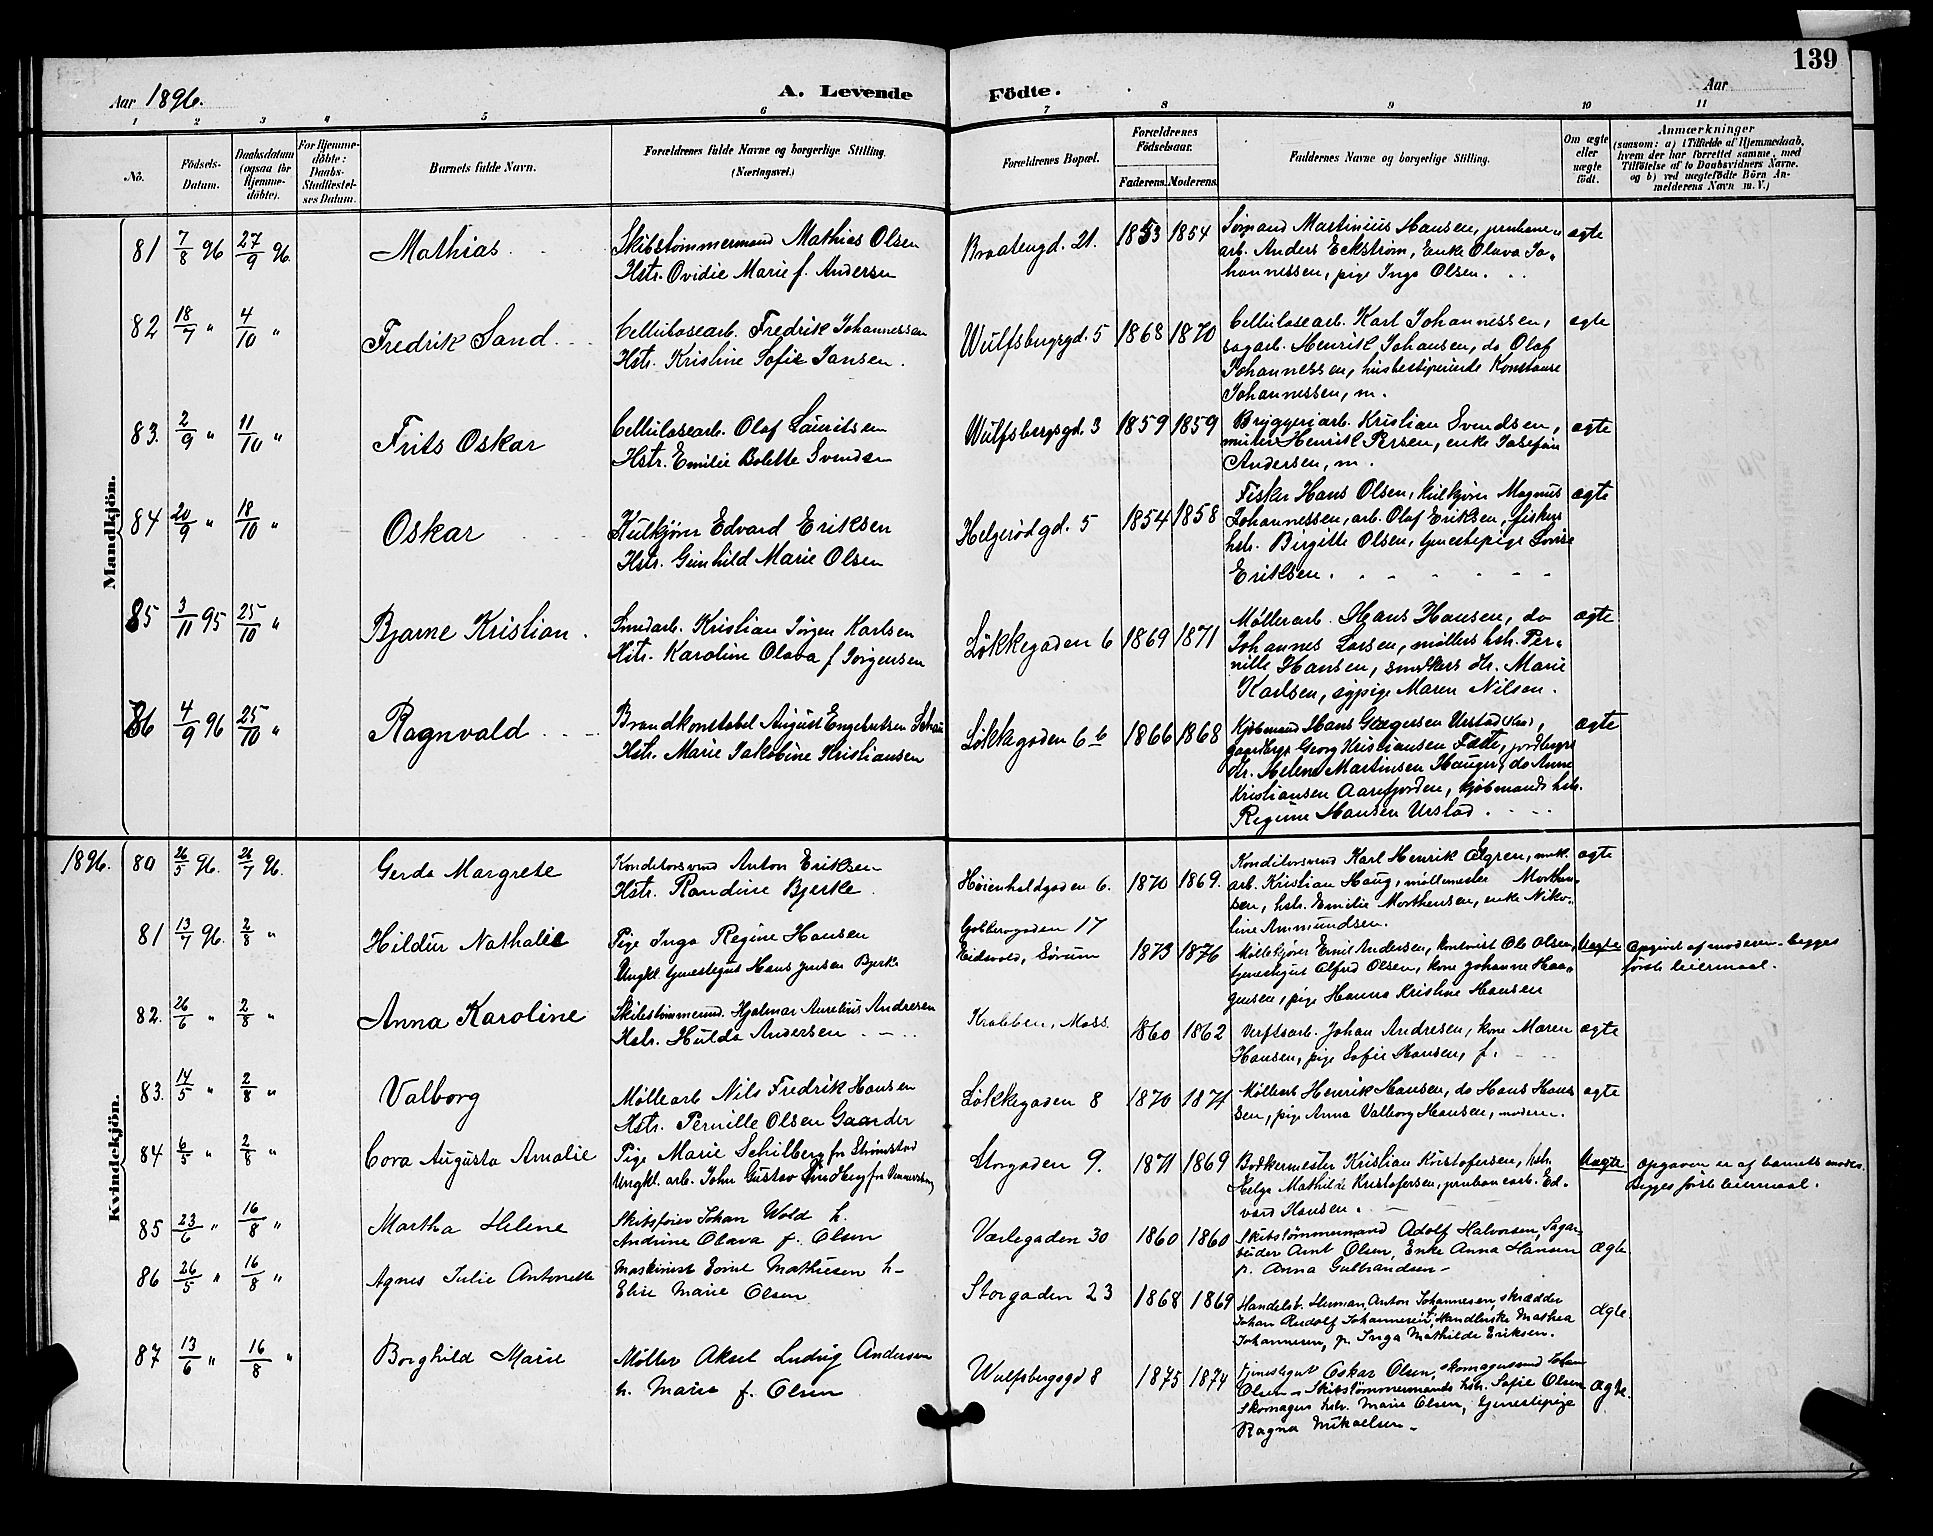 139
Aar 1896.
A. Levende Födte.
Aar
1 2 3 4 5 6 7 8 9 10 11
No.
Födsels-Datum.
Daabsdatum (ogsaa for Hjemme-döbte).
For Hjemme-döbte: Daabs-Stadfæstel-ses Datum.
Barnets fulde Navn.
Forældrenes fulde Navne og borgerlige Stilling.
(Næringsvei.)
Forældrenes Bopæl.
Forældrenes Födselsaar.
Faderens. Moderens.
Faddernes Navne og borgerlige Stilling.
Om ægte eller uægte födt.
Anmærkninger
(saasom: a) i Tilfælde af Hjemmedaab, hvem der har forrettet samme, med Tilföielse af to Daabsvidners Navne. og b) ved uægtefödte Börn An-melderens Navn m. V.)
Mandkjön.
81 7/8 96 27/9 96. Mathias Skibstømmermand Mathias Olsen
Hstr. Ovidie Marie f. Andersen
Braatengd. 21. 1853 1854 Sømand Martinius Hansen,
arb. Anders Eckstrøm, Enke Olava Jo-
hannessen, pige Inga Olsen. ægte
82 18/7 " 4/10 " Fredrik Sand Cellulosearb. Fredrik Johannessen
Hstr. Kristine Sofie Jansen.
Wulfsbergsgd. 5 1868 1870 Cellulosearb. Karl Johannessen,
sagarb. Henrik Johansen, do Olaf
Johannessen, husbestyrerinde Konstanse
Johannessen, m. ægte
83. 2/9 " 11/10 " Frits Oskar Cellulosearb. Olaf Lauritsen
Hstr. Emilie Bolette Svendsen
Wulfsbergsgd. 3 1859 1859 Bryggeriarb. Kristian Svendsen,
murer Henrik Persen, enke Josefine
Andersen, m. ægte
84 20/9 " 18/10 " Oskar Kulkjører Edvard Eriksen
Hstr. Gunhild Marie Olsen
Helgerødgd. 5 1854 1858 Fisker Hans Olsen, kulkjører Magnus
Johannessen, arb. Olaf Eriksen, fiskers
hstr. Birgitte Olsen, tjenestepige Lovise
Eriksen. ægte
85 3/11 95 25/10 " Bjarne Kristian. Smedarb. Kristian Jørgen Karlsen
Hstr. Karoline Olava f Jørgensen
Løkkegaden 6 1869 1871 Møllerarb. Hans Hansen, do
Johannes Larsen, møllers hstr. Per-
nille Hansen, Marie
Karlsen, sypige Maren Nilsen. ægte
86 4/9 96 25/10 " Ragnvald Brandkonstabel August Engebretsen
Hstr. Marie Jakobine Kristiansen
Løkkegaden 6 b 1866 1868 Kjøbmand Hans Gregersen Urstad,
Georg Kristiansen
Helene Martinsen Hauger, do Anne
Kristiansen Aarefjorden, kjøbmands hstr.
Regine Hansen Urstad. ægte
1896.
Kvindekjön.
80 26/5 96. 26/7 96. Gerda Margrete Konditorsvend Anton Eriksen
Hstr. Randine Bjerke
Høienhaldgaden 6. 1870 1869. Konditorsvend Karl Henrik Ålgren, mek.
arb. Kristian Haug, møllemester Morthen-
sen, hstr. Emilie Morthensen, enke Niko-
line Ammundsen. ægte
81 13/7 96. 2/8 " Hildur Nathalie Pige Inga Regine Hansen
Ungkl. tjenestegut Hans Jensen Bjerke
17
Eidsvold, Sørum 1873 1876 Møllekjører Emil Andersen, kontorist Ole Olsen,
tjenestegut Alfred Olsen, kone Johanne Haa-
gensen, pige Hanna Kristine Hansen Uægte Opgivet af moderen. begges
første leiermaal.
82. 26/6 " 2/8 " Anna Karoline Skibstømmermd. Hjalmar Aurelius Andresen
Hstr. Hulda Andersen
Krabben, Moss. 1860 1862 Verftsarb. Johan Andresen, kone Maren
Hansen, pige Sofie Hansen, f. ægte
83. 14/5 " 2/8 " Valborg Møllearb Nils Fredrik Hansen
Hstr. Pernille Olsen Gaarder
Løkkegaden 8 1870 1871 Møllearb Henrik Hansen, do Hans Han-
sen, pige Anna Valborg Hansen, moderen. ægte
84 6/5 " 2/8 " Cora Augusta Amalie Pige Marie Schilberg fra Strømstad
Ungkl. arb. John Gustav Lindberg fra
Storgaden 9. 1871 1869 Bødkermester Kristian Kristofersen, hstr.
Helga Mathilde Kristofersen, Ed-
vard Hansen. Uægte Opgaven er af barnets moder.
Begges første leiermaal.
85 23/6 " 16/8 " Martha Helene Skibsfører Johan Wold h.
Andrine Olava f. Olsen
Værlegaden 30 1860 1860 Skibstømmermand Adolf Halvorsen, Sagar-
beider Arnt Olsen, Enke Anna Hansen
p. Anna Gulbrandsen - ægte.
86 26/5 " 16/8 " Agnes Julie Antonette Maskinist Emil Mathiesen h-
Elise Marie Olsen
Storgaden 23 1868 1869 Handelsb. Herman Anton Johannesen, skrædder
Johan Rudolf Johannesen, Handlerske Mathea
Johannesen, p. Inga Mathilde Eriksen. ægte.
87 13/6 " 16/8 " Borghild Marie Møller Aksel Ludvig Andersen
h. Marie f. Olsen
Wulfsbergsgd 8 1875 1874 Tjenestegut Oskar Olsen, skomagersvend Johan
Olsen - Skibstømmermands hstr. Sofie Olsen
Skomagers hstr. Marie Olsen, tjenestepige
Ragna Mikaelsen - ægte.